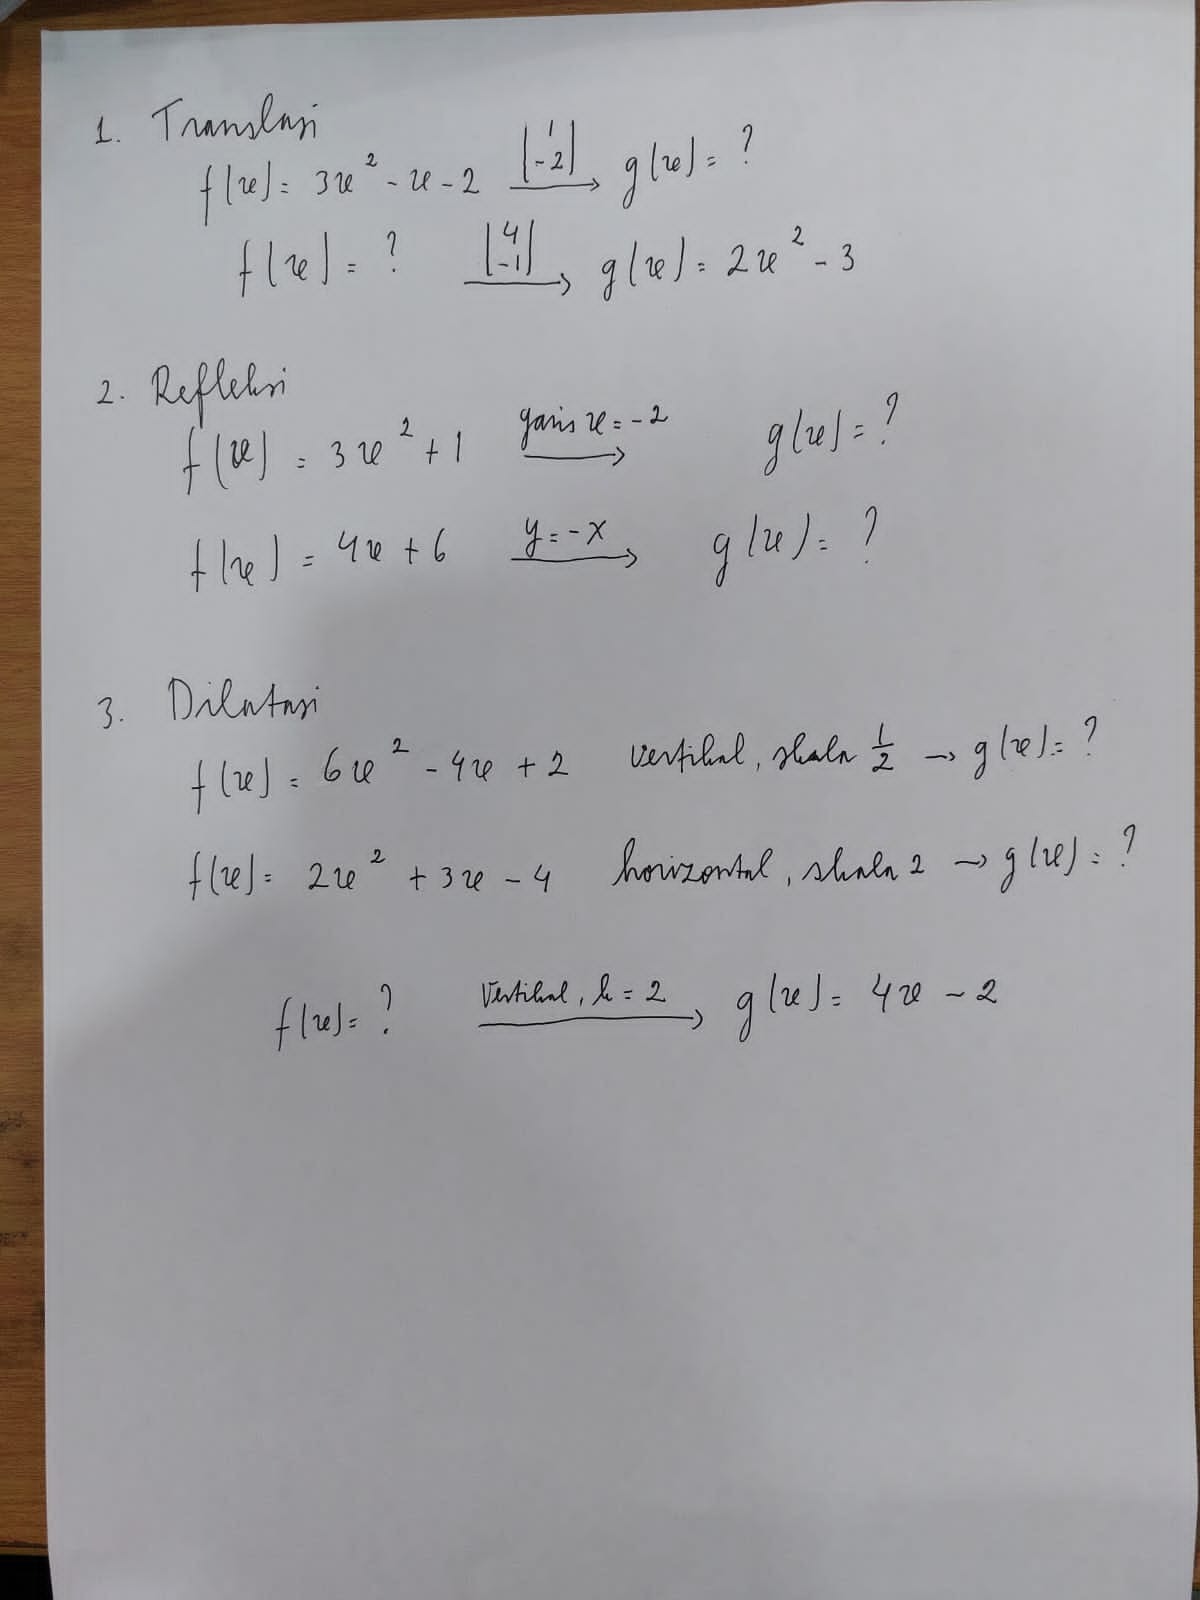 1. Translasi
f(x) = 3x² - x - 2 (1 -2) → g(x) = ?
f(x) = ? (4 -1) → g(x) = 2x² - 3
2. Refleksi
f(x) = 3x² + 1 garis x = -2 → g(x) = ?
f(x) = 4x + 6 y = -x → g(x) = ?
3. Dilatasi
f(x) = 6x² - 4x + 2 vertikal, skala 1/2 → g(x) = ?
f(x) = 2x² + 3x - 4 horizontal, skala 2 → g(x) = ?
f(x) = ? Vertikal, k = 2 → g(x) = 4x - 2